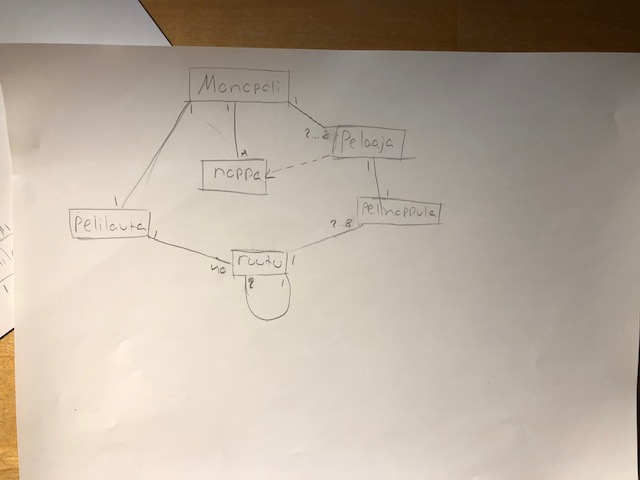 Monopoli
1 1 1
2...8 Pelaaja
noppa
1
1 1
Pelilauta
Pelinappula
1
2..8
ruutu 1
40
1